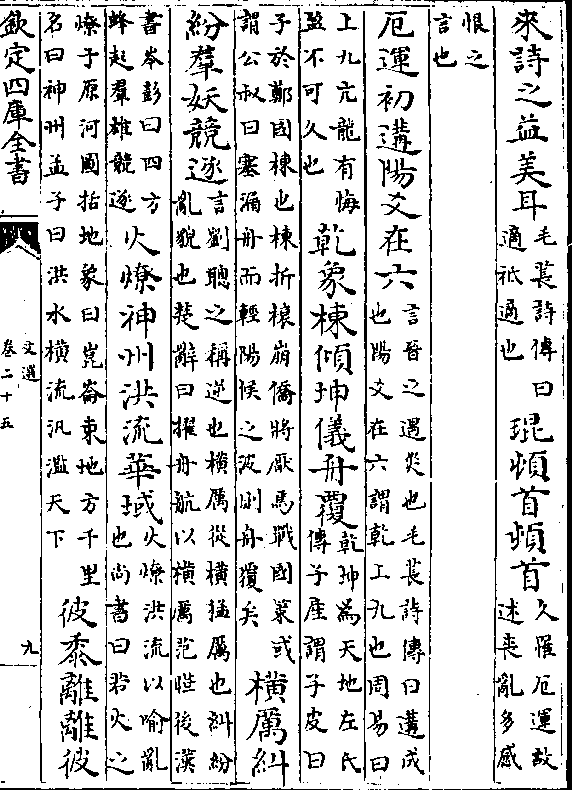 來詩之益美耳毛萇詩傳曰適祗適也琨頓首頓首久罹厄運故述喪亂多感
恨之言也
厄運初遘陽爻在六言晉之遇災也毛萇詩傳曰遘成也陽爻在六謂乾上九也周易曰
上九亢龍有悔盈不可久也乾象棟傾坤儀舟覆乾坤爲天地左氏傳子産謂子皮曰
子於鄭國棟也棟折榱崩僑將厭焉戰國策或謂公叔曰塞漏舟而輕陽侯之波則舟覆矣橫厲糾
紛羣妖競逐言劉聰之稱逆也橫厲從橫猛厲也糾紛亂貌也楚辭曰擢舟航以橫厲范曄後漢
書岑彭曰四方蜂起羣雄競逐火燎神州洪流華域火燎洪流以喻亂也尚書曰若火之
燎于原河圖括地象曰崑崙東地方千里名曰神州孟子曰洪水橫流汎濫天下彼黍離離彼
欽定四庫全書
文選
卷二十五
九